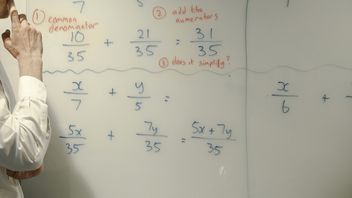 7 5
① common denominator
② add the numerators
10/35 + 21/35 = 31/35
③ does it simplify?
x/7 + y/5 =
x/6 +
5x/35 + 7y/35 = 5x + 7y/35